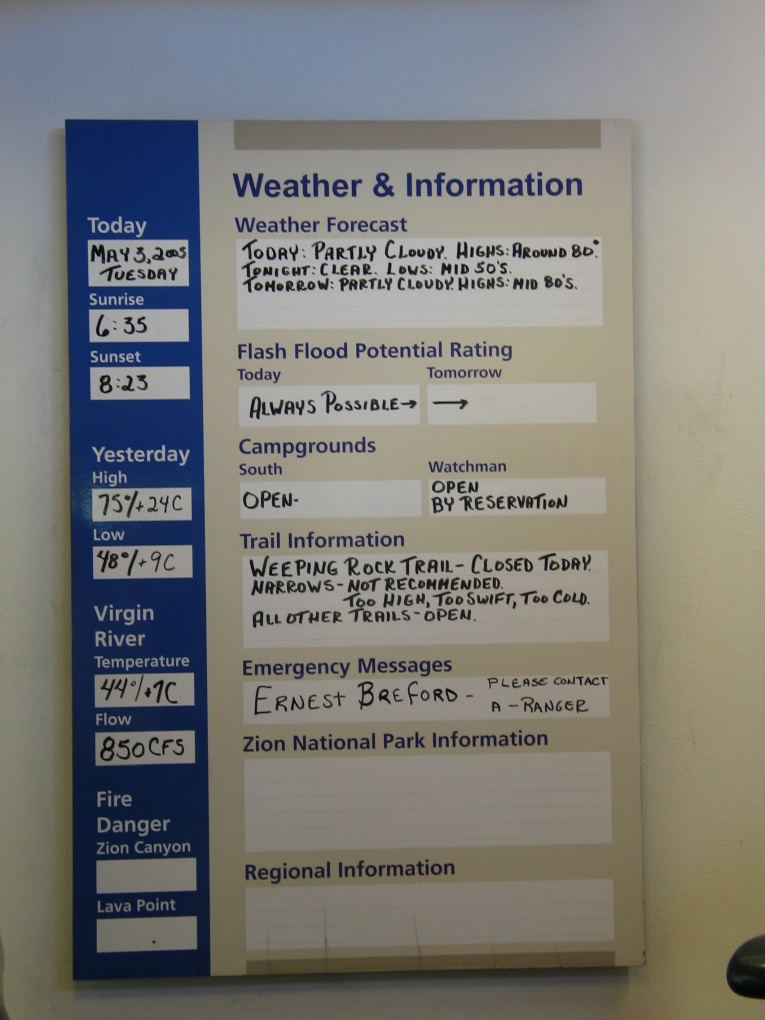 Weather & Information
Today
MAY 3, 2005
TUESDAY
Sunrise
6:35
Sunset
8:23
Yesterday
High
75°/+24C
Low
48°/+9C
Virgin
River
Temperature
44°/+7C
Flow
850 CFS
Fire
Danger
Zion Canyon
Lava Point
Weather Forecast
TODAY: PARTLY CLOUDY. HIGHS: AROUND 80°.
TONIGHT: CLEAR. LOWS: MID 50'S.
TOMORROW: PARTLY CLOUDY. HIGHS: MID 80'S.
Flash Flood Potential Rating
Today
Tomorrow
ALWAYS POSSIBLE→
→
Campgrounds
South
Watchman
OPEN-
OPEN
BY RESERVATION
Trail Information
WEEPING ROCK TRAIL - CLOSED TODAY.
NARROWS - NOT RECOMMENDED.
TOO HIGH, TOO SWIFT, TOO COLD.
ALL OTHER TRAILS - OPEN.
Emergency Messages
ERNEST BREFORD - PLEASE CONTACT
A - RANGER
Zion National Park Information
Regional Information